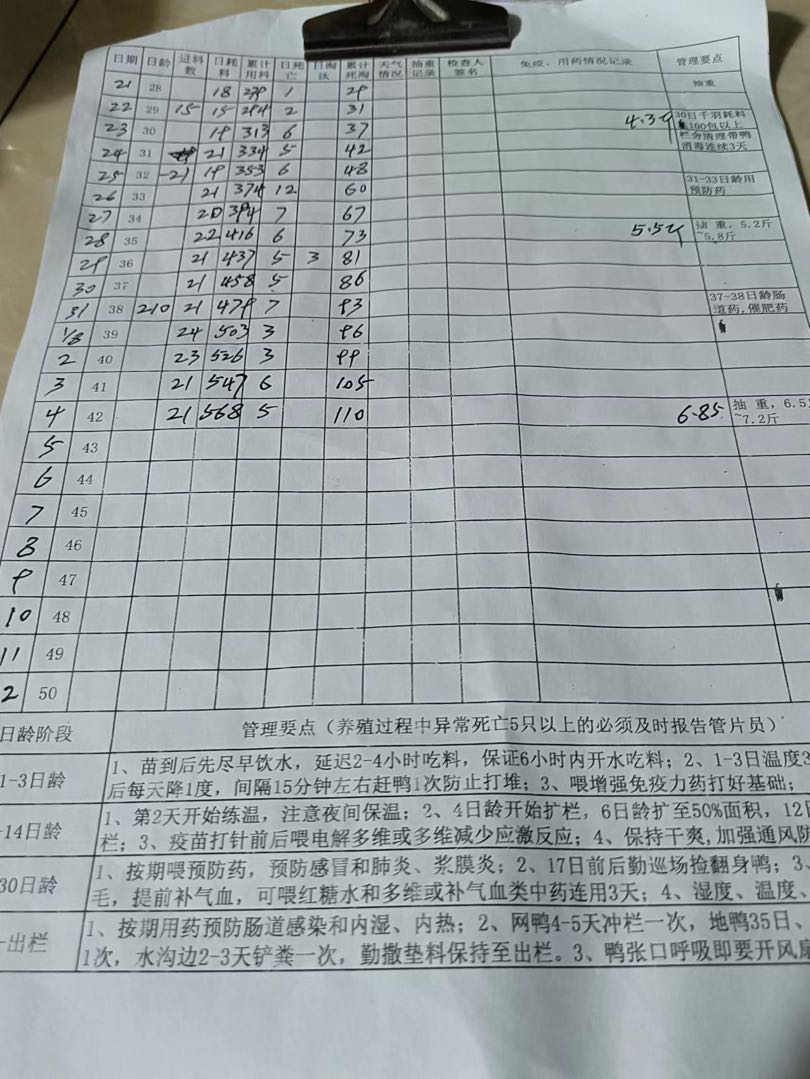 日期 日龄 进料数 日耗料 累计用料 日死亡 日淘汰 累计死淘 天气情况 抽重记录 检查人签名 免疫、用药情况记录 管理要点
21 28 18 279 1 29 抽重
22 29 15 15 294 2 31
23 30 19 313 6 37 4.3斤 30日千羽耗料100包以上
24 31 21 334 5 42 栏舍清理带鸭消毒连续3天
25 32 -21 19 353 6 48
26 33 21 374 12 60 31-33日龄用预防药
27 34 20 394 7 67
28 35 22 416 6 73 5.5斤 抽重，5.2斤~5.8斤
29 36 21 437 5 3 81
30 37 21 458 5 86
31 38 210 21 479 7 93 37-38日龄肠道药，催肥药
1/8 39 24 503 3 96
2 40 23 526 3 99
3 41 21 547 6 105
4 42 21 568 5 110 6.85 抽重，6.5~7.2斤
5 43
6 44
7 45
8 46
9 47
10 48
11 49
2 50
日龄阶段 管理要点（养殖过程中异常死亡5只以上的必须及时报告管片员）
1-3日龄 1、苗到后先尽早饮水，延迟2-4小时吃料，保证6小时内开水吃料；2、1-3日温度3
后每天降1度，间隔15分钟左右赶鸭1次防止打堆；3、喂增强免疫力药打好基础；
-14日龄 1、第2天开始练温，注意夜间保温；2、4日龄开始扩栏，6日龄扩至50%面积，12日
栏；3、疫苗打针前后喂电解多维或多维减少应激反应；4、保持干爽,加强通风防
30日龄 1、按期喂预防药，预防感冒和肺炎、浆膜炎；2、17日前后勤巡场捡翻身鸭；3、
毛，提前补气血，可喂红糖水和多维或补气血类中药连用3天；4、湿度、温度、
-出栏 1、按期用药预防肠道感染和内湿、内热；2、网鸭4-5天冲栏一次，地鸭35日、
1次，水沟边2-3天铲粪一次，勤撒垫料保持至出栏。3、鸭张口呼吸即要开风扇